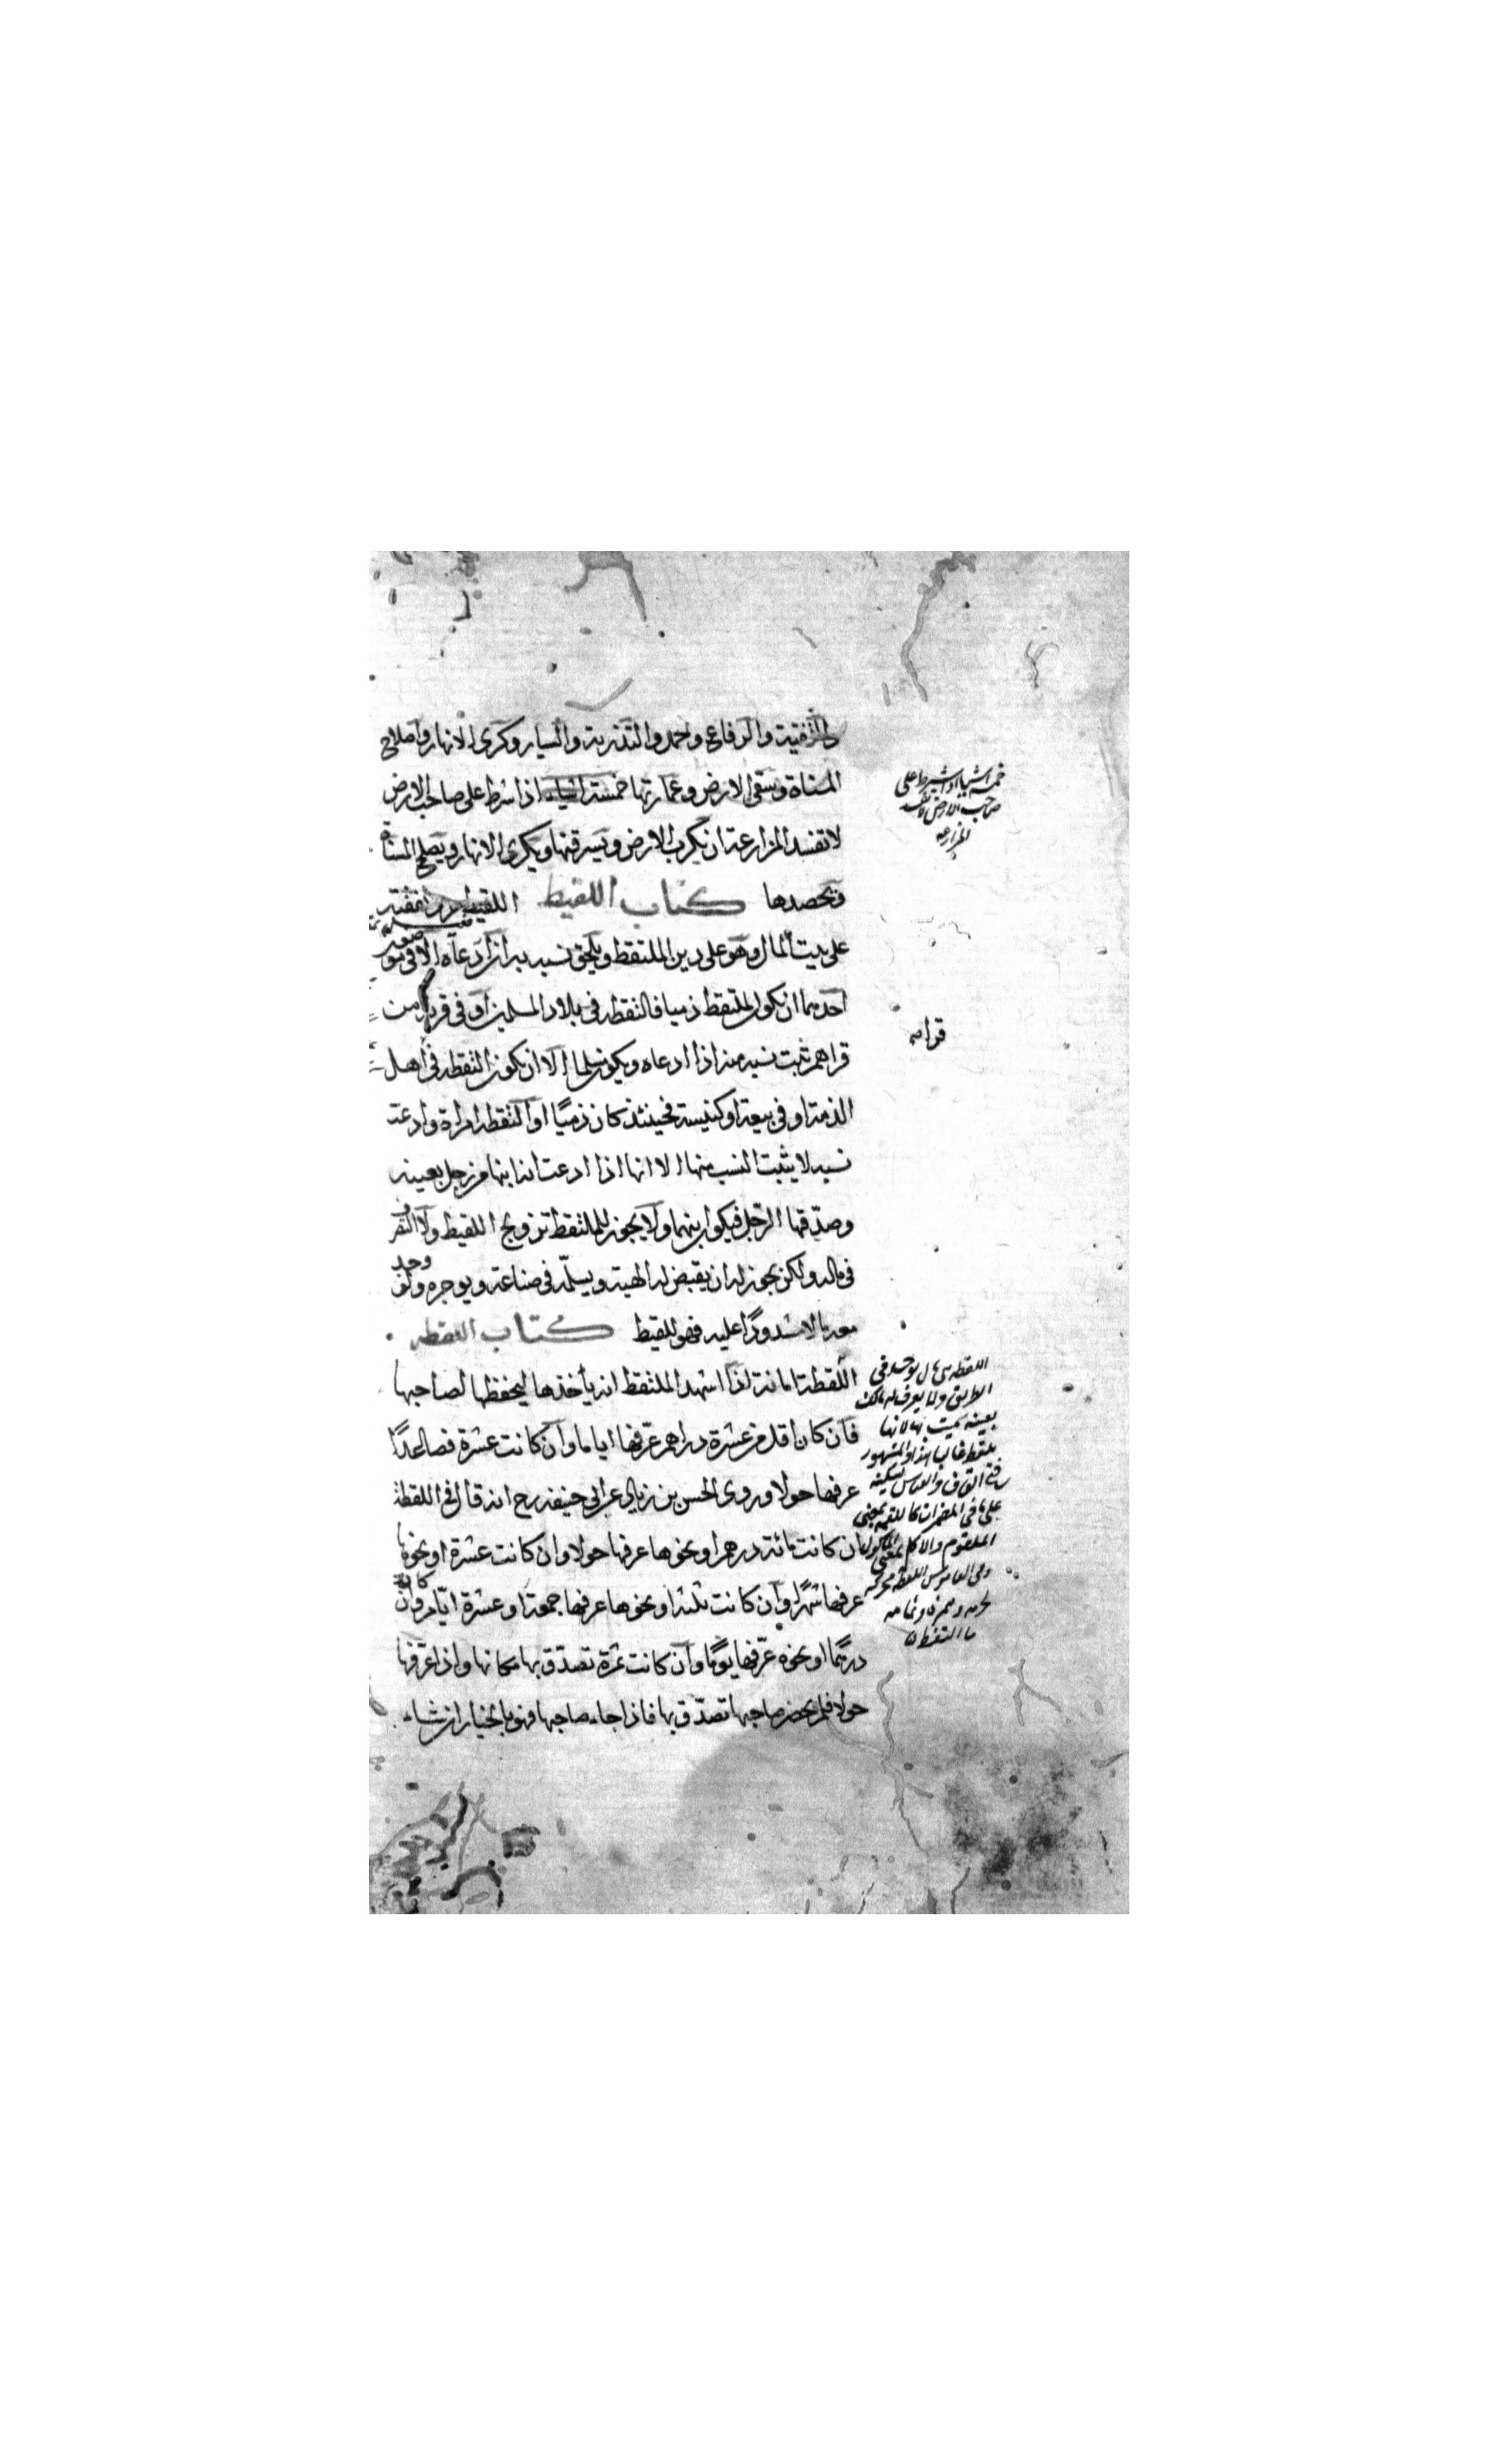 والتنقية والرفاع والحمد والتذرية والسيار وكرى الانهار واصلاح
المسناة وسقى الارض وعمارتها خمسة اشياء اذا شرط على صاحب الارض
لا تفسد المزارعة ان يكرب الارض ويسرقنها ويكرى الانهار ويصلح المسناة
ويحصدها كتاب اللقيط اللقيط حر ونفقته
على بيت المال وهو على دين الملتقط ويلحق نسبه به ان ادعاه الا فى موضعين
احدهما ان يكون الملتقط ذميا فالتقطه فى بلاد المسلمين او فى قرية من
قراهم ثبت نسبه منه اذا ادعاه ويكون مسلما الا ان يكون التقطه فى اهل
الذمة او فى بيعة او كنيسة فحينئذ كان ذميا او التقطه امراة وادعت
نسبه لا يثبت النسب منها الا انها اذا ادعت انه ابنها من رجل بعينه
وصدقها الرجل فيكون ابنهما ولا يجوز للملتقط تزويج اللقيط ولا التصرف
فى ماله ولكن يجوز له ان يقبض له الهبة ويسلمه فى صناعة ويوجره ولو وجد
عليه فهو للقيط كتاب اللقطه
اللقطة امانة اذا اشهد الملتقط انه يأخذها ليحفظها لصاحبها
فان كان اقل من عشرة دراهم عرفها اياما وان كانت عشرة فصاعدا
عرفها حولا وروى الحسن بن زياد عن ابى حنيفة رح انه قال فى اللقطة
ان كانت مائة درهم او نحوها عرفها حولا وان كانت عشرة او نحوها
عرفها شهرا وان كانت ثلثة او نحوها عرفها جمعة او عشرة ايام وان كانت
درهما او نحوه عرفها يوما وان كانت تمرة تصدق بها مكانها واذا عرفها
حولا فلم يحضر صاحبها تصدق بها فاذا جاء صاحبها فهو بالخيار ان شاء
خمسة اشياء اذا شرط على
صاحب الارض لا تفسد
المزارعة
اللقطه هى مال يوجد فى
الطريق ولا يعرف له مالك
بعينه سميت بها لانها
يلتقط غالبا هذا والمشهور
فتح القاف والقياس تسكينه
على ما فى المضمرات كاللقمة بمعنى
الملقوم والاكل بمعنى المأكول
وفى القاموس اللقطه محركة
ما التقط